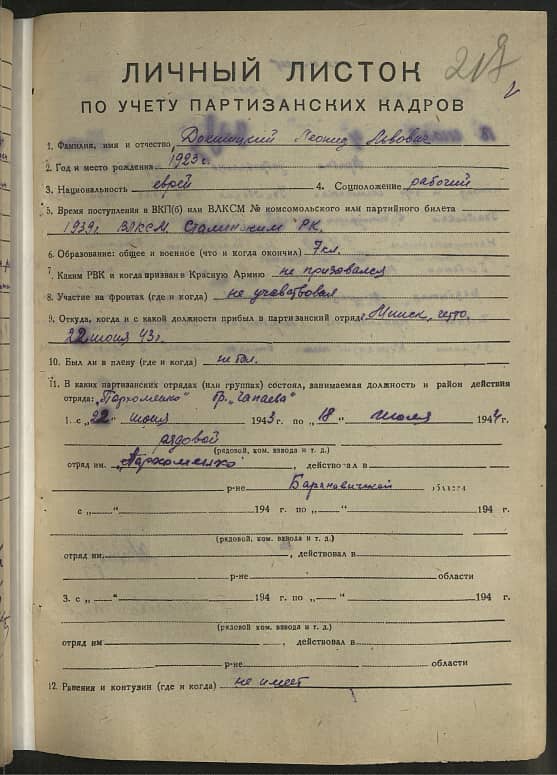 219
ЛИЧНЫЙ ЛИСТОК
ПО УЧЕТУ ПАРТИЗАНСКИХ КАДРОВ
1. Фамилия, имя и отчество Докшицкий Леонид Львович
2. Год и место рождения 1923 г.
3. Национальность еврей 4. Соцположение рабочий
5. Время поступления в ВКП(б) или ВЛКСМ № комсомольского или партийного билета
1939 г. ВЛКСМ Сталинским РК.
6. Образование: общее и военное (что и когда окончил) 7 кл.
7. Каким РВК и когда призван в Красную Армию не призовался
8. Участие на фронтах (где и когда) не учавствовал
9. Откуда, когда и с какой должности прибыл в партизанский отряд Минск, гетто.
22 июня 43 г.
10. Был ли в плену (где и когда) не был.
11. В каких партизанских отрядах (или группах) состоял, занимаемая должность и район действия
отряда: "Пархоменко" бр. "Чапаева"
1. с „22" июня 1943 г. по „18" июля 1944 г.
рядовой
(рядовой, ком. взвода и т. д.)
отряд им. "Пархоменко", действовал в
р-не Барановичской области
с „ " 194 г. по „ " 194 г.
(рядовой, ком. взвода и т. д.)
отряд им. , действовал в
р-не области
3. с „ " 194 г. по „ " 194 г.
(рядовой, ком. взвода и т. д.)
отряд им , действовал в
р-не области
12. Ранения и контузии (где и когда) не имеет